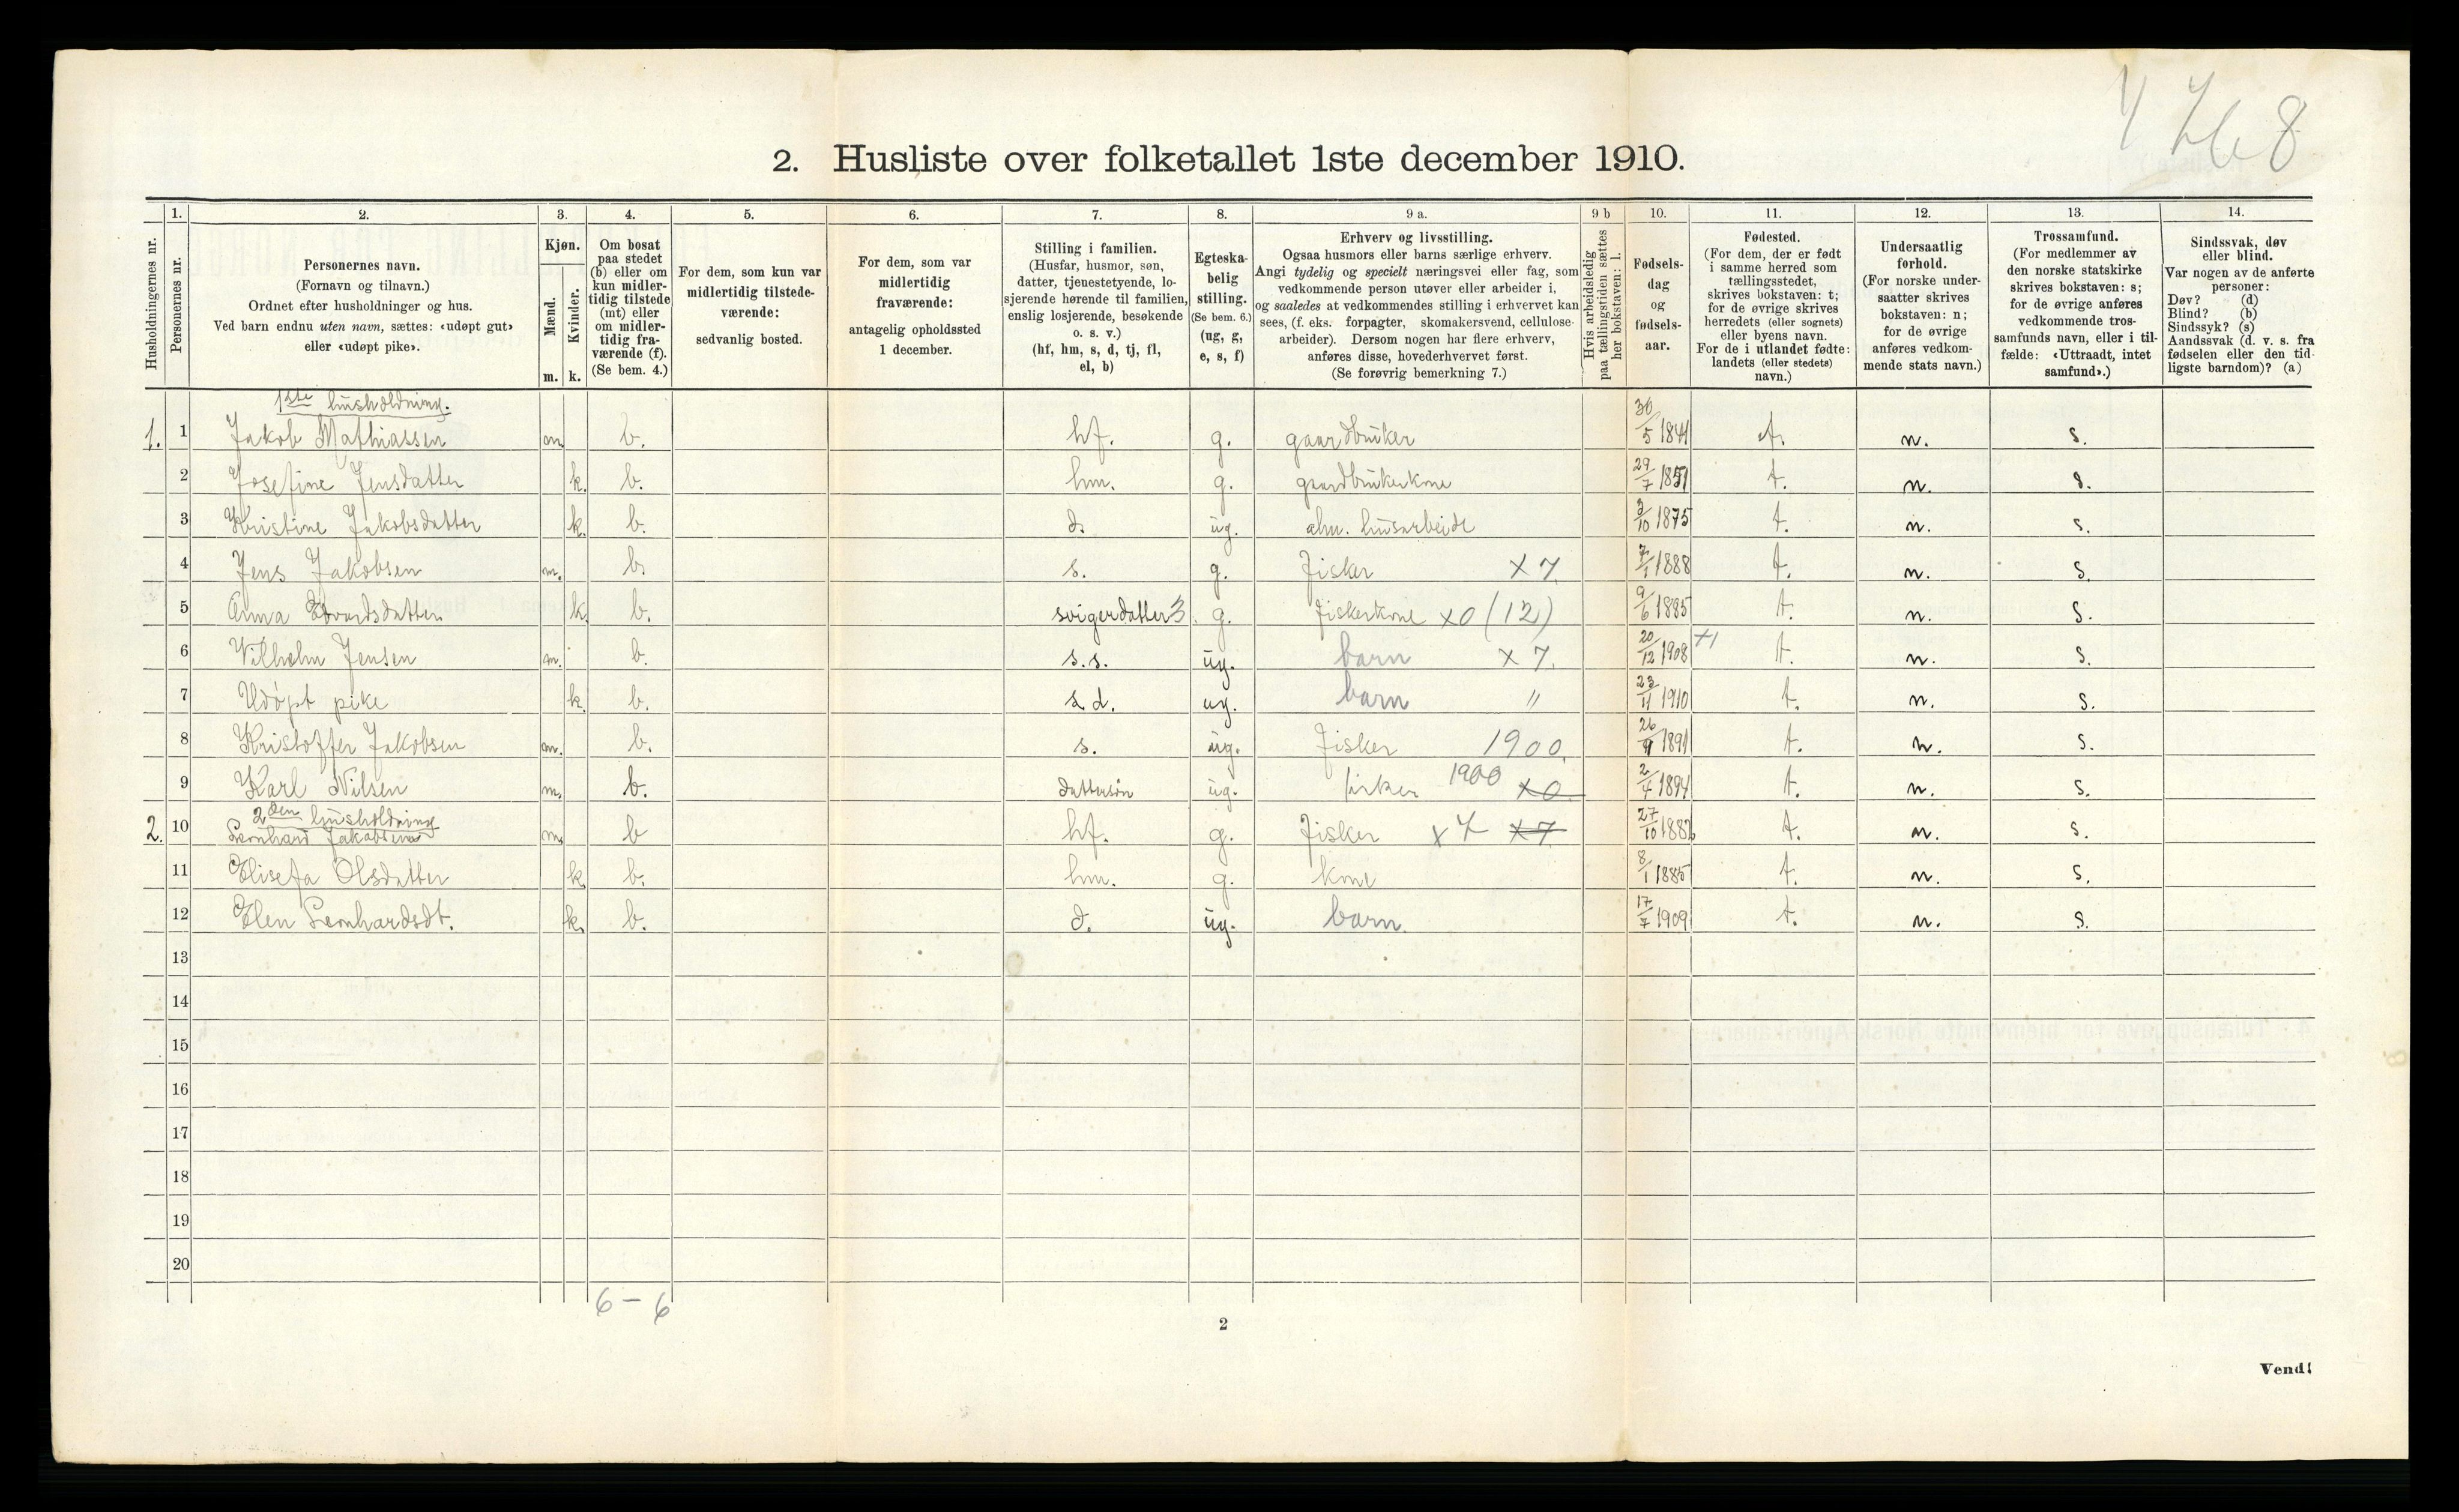 4 768
2. Husliste over folketallet 1ste december 1910.
Husholdningernes nr.
1. Personernes nr.
2. Personernes navn.
(Fornavn og tilnavn.)
Ordnet efter husholdninger og hus.
Ved barn endnu uten navn, sættes: «udøpt gut»
eller «udøpt pike».
3. Kjøn.
Mænd. m.
Kvinder. k.
4. Om bosat
paa stedet
(b) eller om
kun midler-
tidig tilstede
(mt) eller
om midler-
tidig fra-
værende (f).
(Se bem. 4.)
5. For dem, som kun var
midlertidig tilstede-
værende:
sedvanlig bosted.
6. For dem, som var
midlertidig
fraværende:
antagelig opholdssted
1 december.
7. Stilling i familien.
(Husfar, husmor, søn,
datter, tjenestetyende, lo-
sjerende hørende til familien,
enslig losjerende, besøkende
o. s. v.)
(hf, hm, s, d, tj, fl,
el, b)
8. Egteska-
belig
stilling.
(Se bem. 6.)
(ug, g,
e, s, f)
9 a. Erhverv og livsstilling.
Ogsaa husmors eller barns særlige erhverv.
Angi tydelig og specielt næringsvei eller fag, som
vedkommende person utøver eller arbeider i,
og saaledes at vedkommendes stilling i erhvervet kan
sees, (f. eks. forpagter, skomakersvend, cellulose-
arbeider). Dersom nogen har flere erhverv,
anføres disse, hovederhvervet først.
(Se forøvrig bemerkning 7.)
9 b Hvis arbeidsledig
paa tællingstiden sættes
her bokstaven: l.
10. Fødsels-
dag
og
fødsels-
aar.
11. Fødested.
(For dem, der er født
i samme herred som
tællingsstedet,
skrives bokstaven: t;
for de øvrige skrives
herredets (eller sognets)
eller byens navn.
For de i utlandet fødte:
landets (eller stedets)
navn.)
12. Undersaatlig
forhold.
(For norske under-
saatter skrives
bokstaven: n;
for de øvrige
anføres vedkom-
mende stats navn.)
13. Trossamfund.
(For medlemmer av
den norske statskirke
skrives bokstaven: s;
for de øvrige anføres
vedkommende tros-
samfunds navn, eller i til-
fælde: «Uttraadt, intet
samfund».)
14. Sindssvak, døv
eller blind.
Var nogen av de anførte
personer:
Døv? (d)
Blind? (b)
Sindssyk? (s)
Aandssvak (d. v. s. fra
fødselen eller den tid-
ligste barndom)? (a)
1ste husholdning.
1. 1 Jakob Mathiassen m b. hf. g. gaardbruker 30/5 1841 t. n. s.
2 Josefine Jensdatter k. b. hm. g. gaardbrukerkone 29/7 1851 t. n. s.
3 Kristine Jakobsdatter k. b. d. ug. alm. husarbeide 3/10 1875 t. n. s.
4 Jens Jakobsen m. b. s. g. Fisker x 7 7/1 1888 t. n. s.
5 Anna Edvardsdatter k. b. svigerdatter 3. g. fiskerkone x0 (12) 9/6 1885 t. n. s.
6 Vilhelm Jensen m. b. s.s. ug. barn x 7. 20/12 1908 t. n. s.
7 Udøpt pike k. b. s.d. ug. barn " 23/11 1910 t. n. s.
8 Kristoffer Jakobsen m. b. s. ug. Fisker 1900. 26/9 1891 t. n. s.
9 Karl Nilsen m. b. dattersøn ug. fisker 1900 x0 2/4 1894 t. n. s.
2den husholdning
2. 10 Lernhard Jakobsen m b hf. g. Fisker x 7 x 7 27/10 1882 t. n. s.
11 Elisefa Olsdatter k. b. hm. g. kone 8/1 1885 t. n. s.
12 Elen Lernhardsdt. k. b. d. ug. barn 17/7 1909 t. n. s.
13
14
15
16
17
18
19
20
6 - 6
2
Vend!